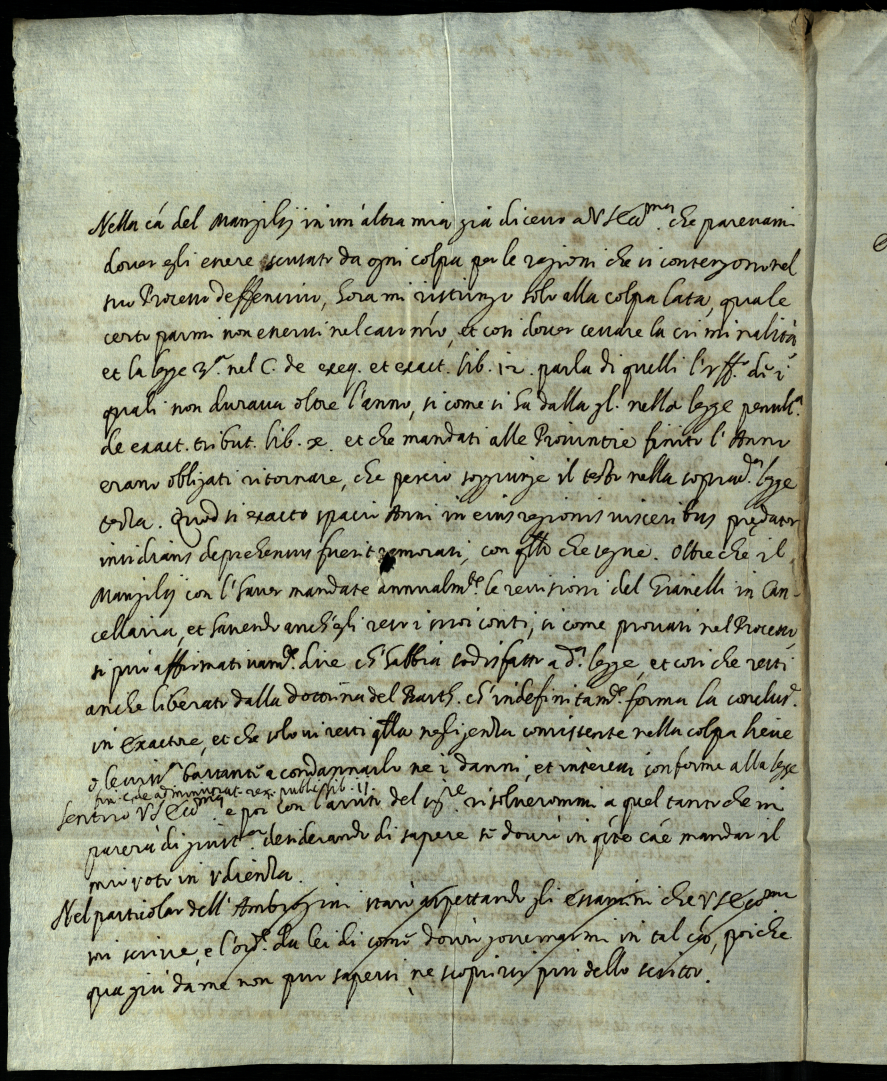 Nella cá del Manzilij in un'altra mia già dicevo a V S Ecc.ma che parevami
dover egli essere scusato da ogni colpa per le ragioni che si contengono nel
suo Processo deffensivo, hora mi ristringo solo alla colpa lata, quale
certo parmi non essersi nel caso nro, et così dover cessare la criminalità
et la legge 3.a nel C. de exeq. et exact. lib. 12. parla di quelli l'uff.o
quali non durava oltre l'anno, si come si ha dalla gl. nella legge penult.a
de exact. tribut. lib. x. et che mandati alle Provintie finito l'Anno
erano obligati ritornare, che perciò soggiunge il testo nella soprad.a legge
terza. Quod si exacto spatio Anni in eius regionis visceribus prędator
insidians deprehensus fuerit remorari, con qllo che segue. Oltre che il
Manzilij con l'haver mandate annualm.te le revisioni del Granelli in Can-
cellaria, et havendo anch'egli resi i suoi conti, si come provasi nel Processo,
si può affirmativam.e dire ch'habbia sodisfatto a d.a legge, et così che resti
anche liberato dalla dottrina del Barth. ch'indefinitam.e forma la conclus.e
in Exactore, et che solo vi resti qlla negligenza consistente nella colpa lieve
o leviss.a bastante a condannarlo ne i danni, et interessi conforme alla legge
fin. C. de administrat. rer. public. lib. 11.
Sentirò V S Ecc.ma e poi con l'aviso del risolverommi a quel tanto che mi
parerà di giust.a desiderando di sapere se dovrò in qsto cáe mandar il
mio voto in Udienza.
Nel particolar dell'Ambrogini starò aspettando gli essamini che V S Ecc.ma
mi scrive, e l'ord.e da lei di come dovrò governarmi in tal ciò, poiche
qua giù da me non può sapersi, ne scoprirsi più dello scritto.